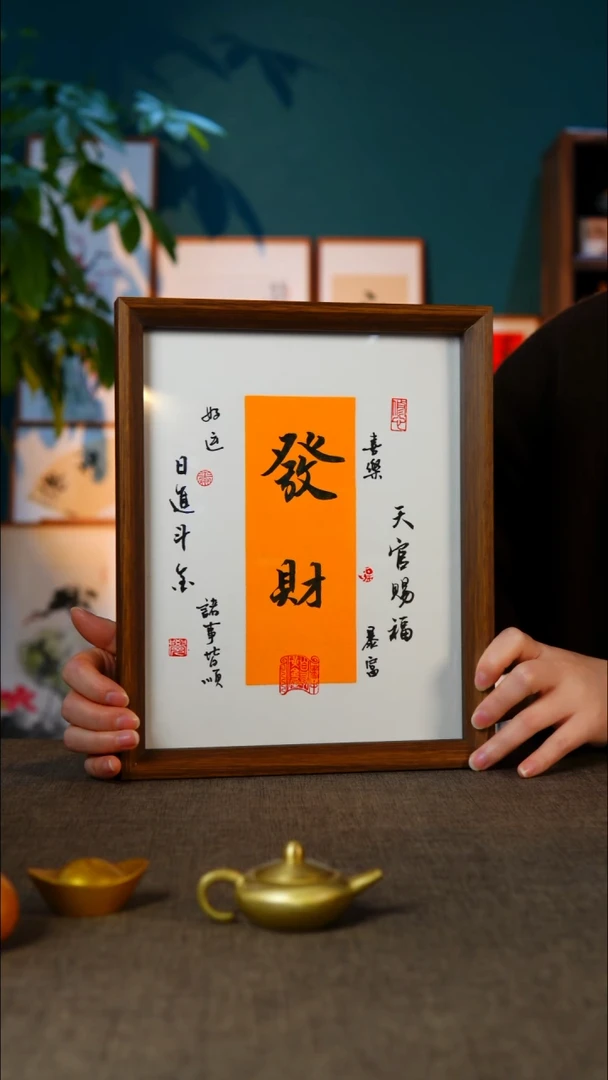 發財
喜樂
天官賜福
暴富
好运
日進斗金
諸事皆順